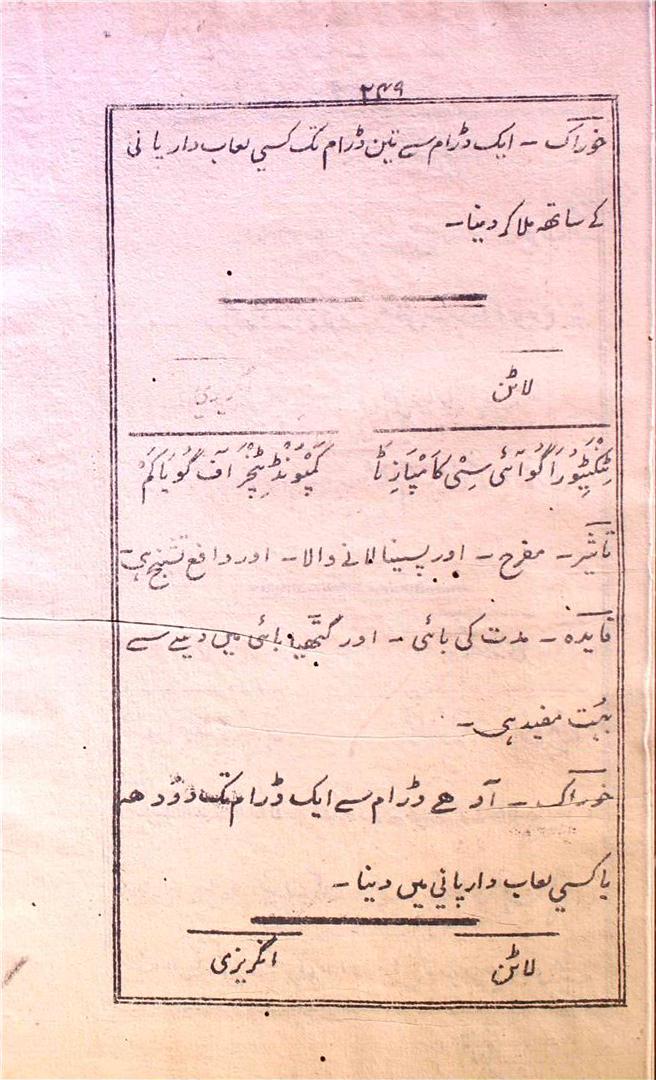 ۲۴۹
خوراک - ایک ڈرام سے تین ڈرام تک کسی لعاب دار پانی
کے ساتھ ملا کر دینا-
لاٹن
ٹِنْکِٹِیُورَا گُوآئی سِیْ کَامْپَازِٹَا کَمْپَونْڈْ ٹِنْچَرْ آف گُویَاکَمْ
تاثیر - مفرح - اور پسینا لانے والا - اور دافع تشنج ہی
فایدہ - مدت کی بائی - اور گٹھیا بائی میں دینے سے
بہُت مفید ہی-
خوراک - آدھے ڈرام سے ایک ڈرام تک دوُدھ
یا کسی لعاب دار پانی میں دینا-
لاٹن انگریزی